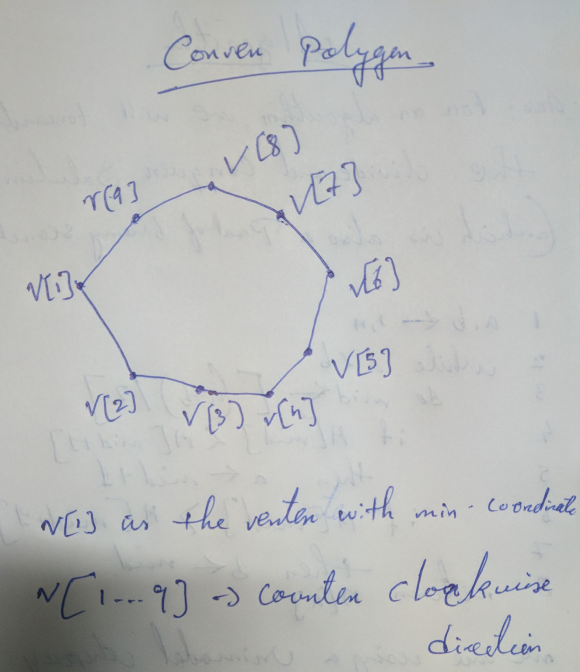 Conven Polygen
V[8]
V[7]
v[9]
V[1]
V[6]
V[5]
V[2]
V[3]
V[4]
V[1] is the venten with min. coordinate
V[1...9] → counten clockwise
direction